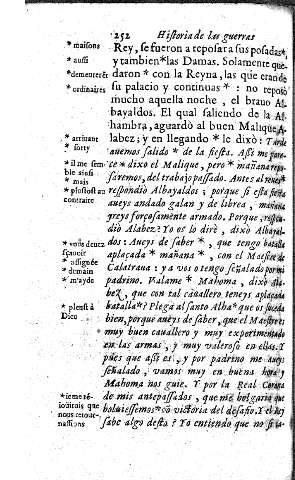 252 Historia de las guerras
* maisons
Rey, se fueron a reposar a sus posadas*,
* aussi
y tambien* las Damas. Solamente que-
* demeurerēt
daron* con la Reyna, las que eran de
* ordinaires
su palacio y continuas*: no reposò
mucho aquella noche, el brauo Al-
bayaldos. El qual saliendo de la Al-
hambra, aguardò al buen Malique A-
* arriuant
labez; y en llegando* le dixò: Tarde
* sorty
auemos salido* de la fiesta. Assi me pare-
* il me sem-
ce* dixo el Malique, pero* mañana repo-
ble ainsi
saremos, del trabajo passado. Antes al reues*
* mais
* plustost au
respondiò Albayaldos; porque si esta fiesta
contraire
aueys andado galan y de librea, mañana
greys forçosamente armado. Porque, respon-
diò Alabez? Yo os lo dirè, dixo Albayal-
* vous deuez
dos: Aueys de saber*, que tengo batalla
sçauoir
* assignée
aplaçada* mañana*, con el Maestre de
* demain
Calatraua: ya vos o tengo señalado por mi
* m'ayde
padrino. Valame* Mahoma, dixò Ala-
bez, que con tal cauallero teneys aplaçada
* plenst à
batalla*? Plega al santo Alha* que os suceda
Dieu
bien, porque aueys de saber, que el Maestre es
muy buen cauallero y muy experimentado
en las armas, y muy valeroso en ellas. Y
pues que assi es, y por padrino me aueys
señalado, vamos muy en buena hora y
Mahoma nos guie. Y por la Real Corona
* ieme ré-
de mis antepassados, que me holgaria que
ioüirois que
boluiessemos* cō victoria del desafio. Y el Rey
nous retour-
nassions
sabe algo desta? Yo entiendo que no si la-